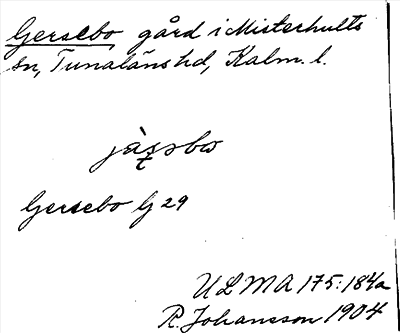 Gersebo gård i Misterhults
sn, Tunaläns hd, Kalm. l.
Gersebo Gj 29
ULMA 175:184a
R. Johansson 1904